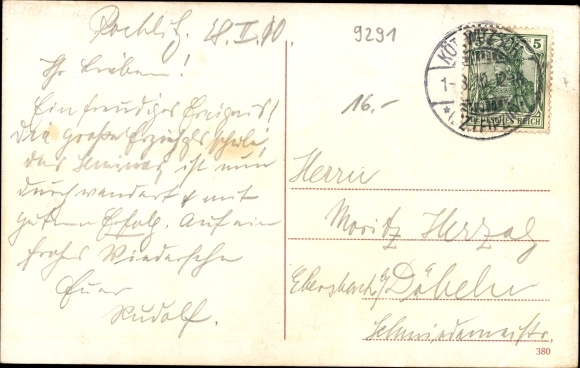 Rochlitz. 28.II.10
9291
Ihr Lieben!
Ein freudiges Ereignis!
Die große Erziehgsschule,
das Seminar, ist nun
durchwandert & mit
gutem Erfolg. Auf ein
frohes Wiedersehn
Euer
Rudolf.
16.-
5
DEUTSCHES REICH
Herrn
Moritz Herzog
Ebersbach b/ Döbeln
Schmiedemeistr.
380